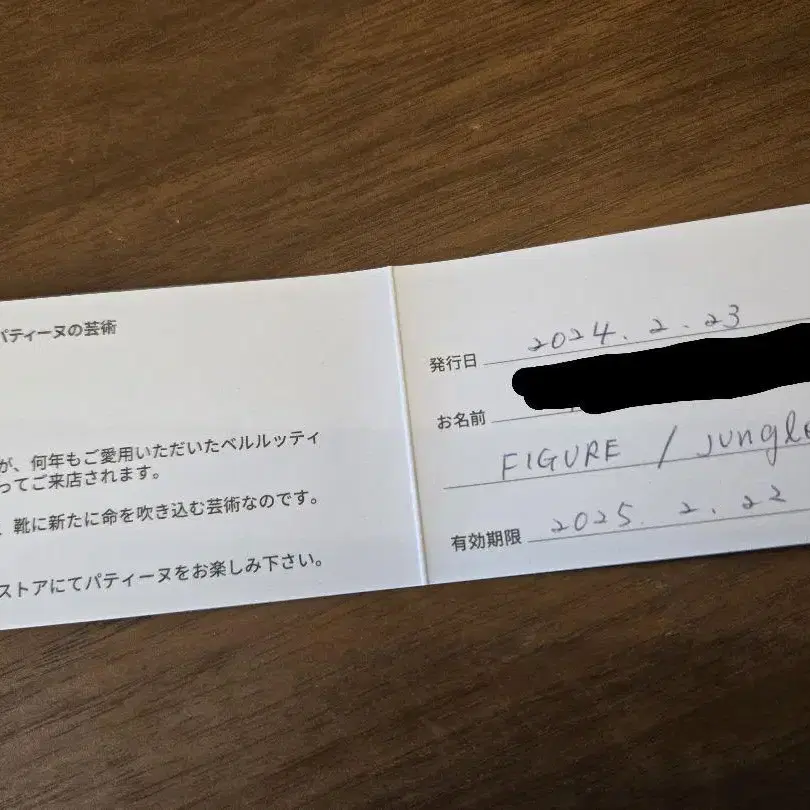 パティーヌの芸術
が、何年もご愛用いただいたベルルッティ
ってご来店されます。
、靴に新たに命を吹き込む芸術なのです。
ストアにてパティーヌをお楽しみ下さい。
発行日 2024.2.23
お名前
FIGURE / jungle
有効期限 2025.2.22